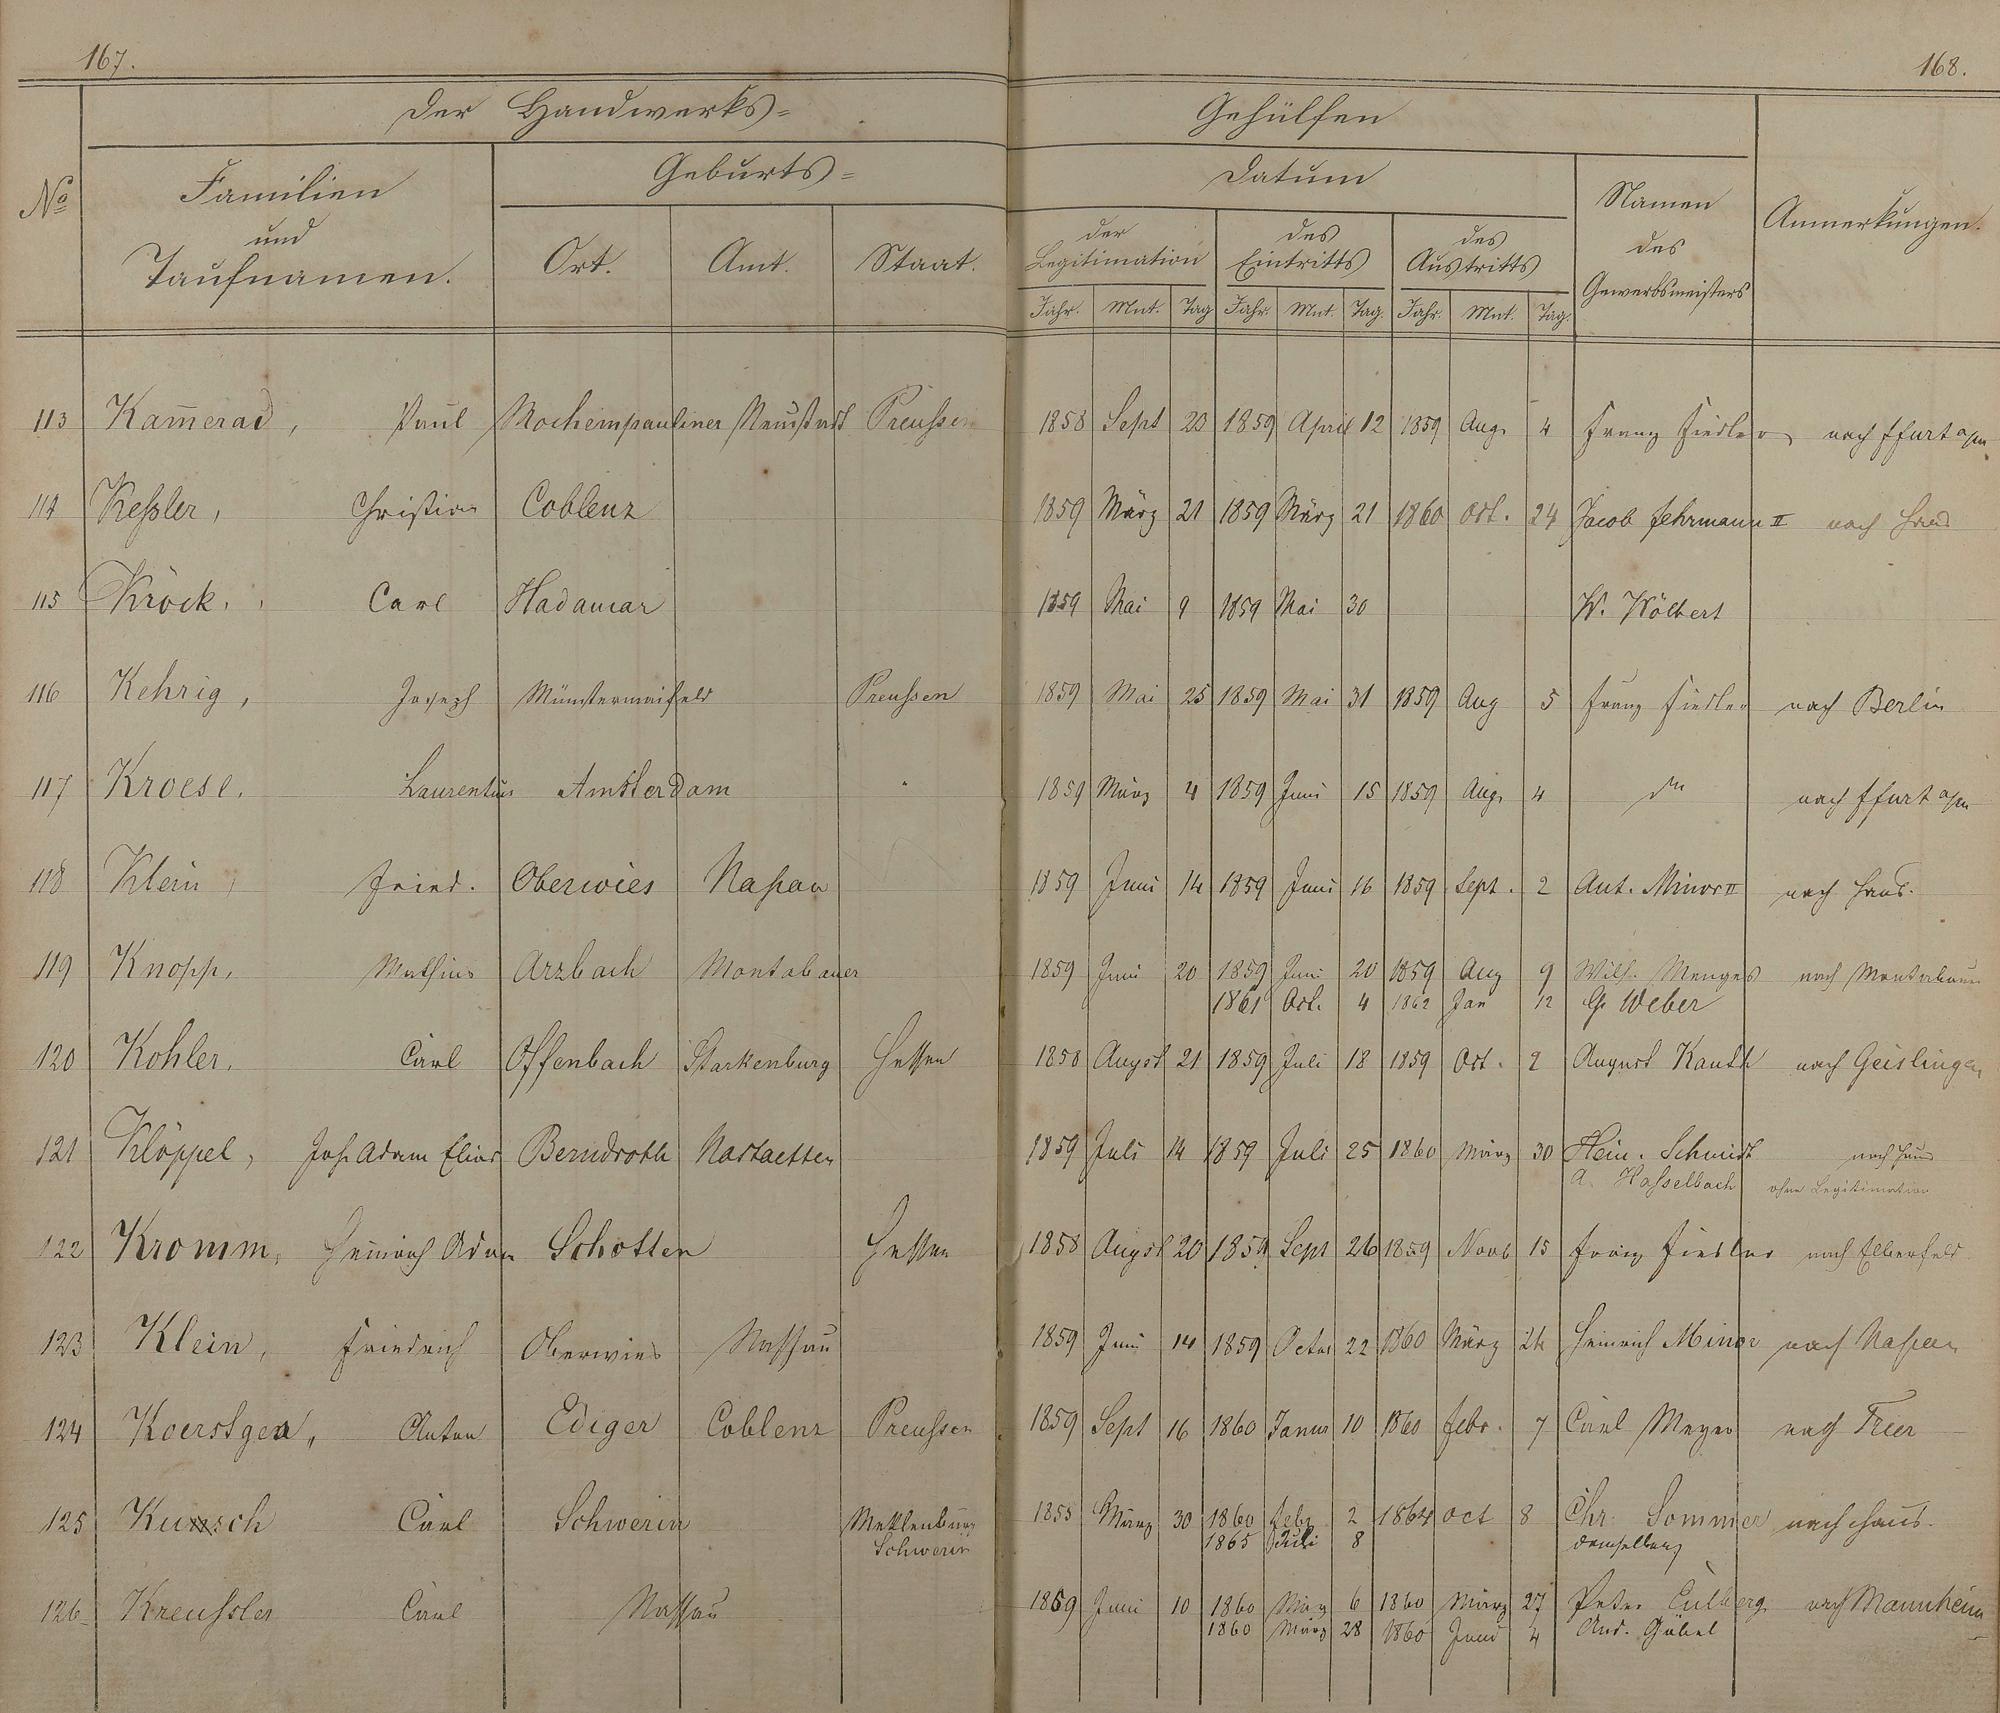 167.
168.
Der Handwerks=
Gehülfen
No
Familien
und
Taufnamen.
Geburts=
Ort. Amt. Staat.
Datum
der
Legitimation
des
Eintritts
des
Austritts
Jahr. Mnt. Tag Jahr. Mnt. Tag. Jahr. Mnt. Tag.
Namen
des
Gewerbsmeisters
Anmerkungen.
113 Kam̅erad, Paul Neustadt Preußen 1858 Sept 20 1859 April 12 1859 Aug. 4 Franz Fiedler nach Ffurt a/m
114 Keßler, Christian Coblenz 1859 März 21 1859 März 21 1860 Oct. 24 Jacob Fehrmann II nach Haus
115 Kröck, Carl Hadamar 1859 Mai 9 1859 Mai 30 W. Wölbert
116 Kehrig, Joseph Münstermaifeld Preußen 1859 Mai 25 1859 Mai 31 1859 Aug 5 Franz Fiedler nach Berlin
117 Kroese. Laurentius Amsterdam 1859 März 4 1859 Juni 15 1859 Aug. 4 do nach Ffurt a/m
118 Klein, Fried. Oberwies Naßau 1859 Juni 14 1859 Juni 16 1859 Sept. 2 Ant. Minor II nach Haus.
119 Knopp, Mathias Arzbach Montabauer 1859 Juni 20 1859 Juni 20 1859 Aug 9 Wilh. Menges nach Montabaur
1861 Oct. 4 1862 Jan 12 G. Weber
120 Kohler, Carl Offenbach Starkenburg Hessen 1858 Augst 21 1859 Juli 18 1859 Oct. 2 August Kauth nach Geislingen
121 Klöppel, Joh. Adam Elias Berndroth Nastaetten 1859 Juli 14 1859 Juli 25 1860 März 30 Hein. Schmidt nach Haus
A. Haßelbach ohne Legitimation
122 Kromm, Heinrich Adam Schotten Hessen 1858 Augst 20 1859 Sept 26 1859 Novb 15 Franz Fiedler nach Elberfeld
123 Klein, Friedrich Oberwies Nassau 1859 Juni 14 1859 Octor 22 1860 März 24 Heinrich Minor nach Naßau
124 Koerstgen, Anton Ediger Coblenz Preußen 1859 Sept 16 1860 Januar 10 1860 Febr. 7 Carl Meyer nach Trier
125 Kunsch Carl Schwerin Mecklenburg 1855 März 30 1860 Febr 2 1864 Oct 8 Chr. Sommer nach Haus.
Schwerin 1865 Juli 8 demselben
126 Kreußler Carl Nassau 1859 Juni 10 1860 März 6 1860 März 27 Peter Eulberg nach Mannheim
1860 März 28 1860 Juni 4 And. Göbel